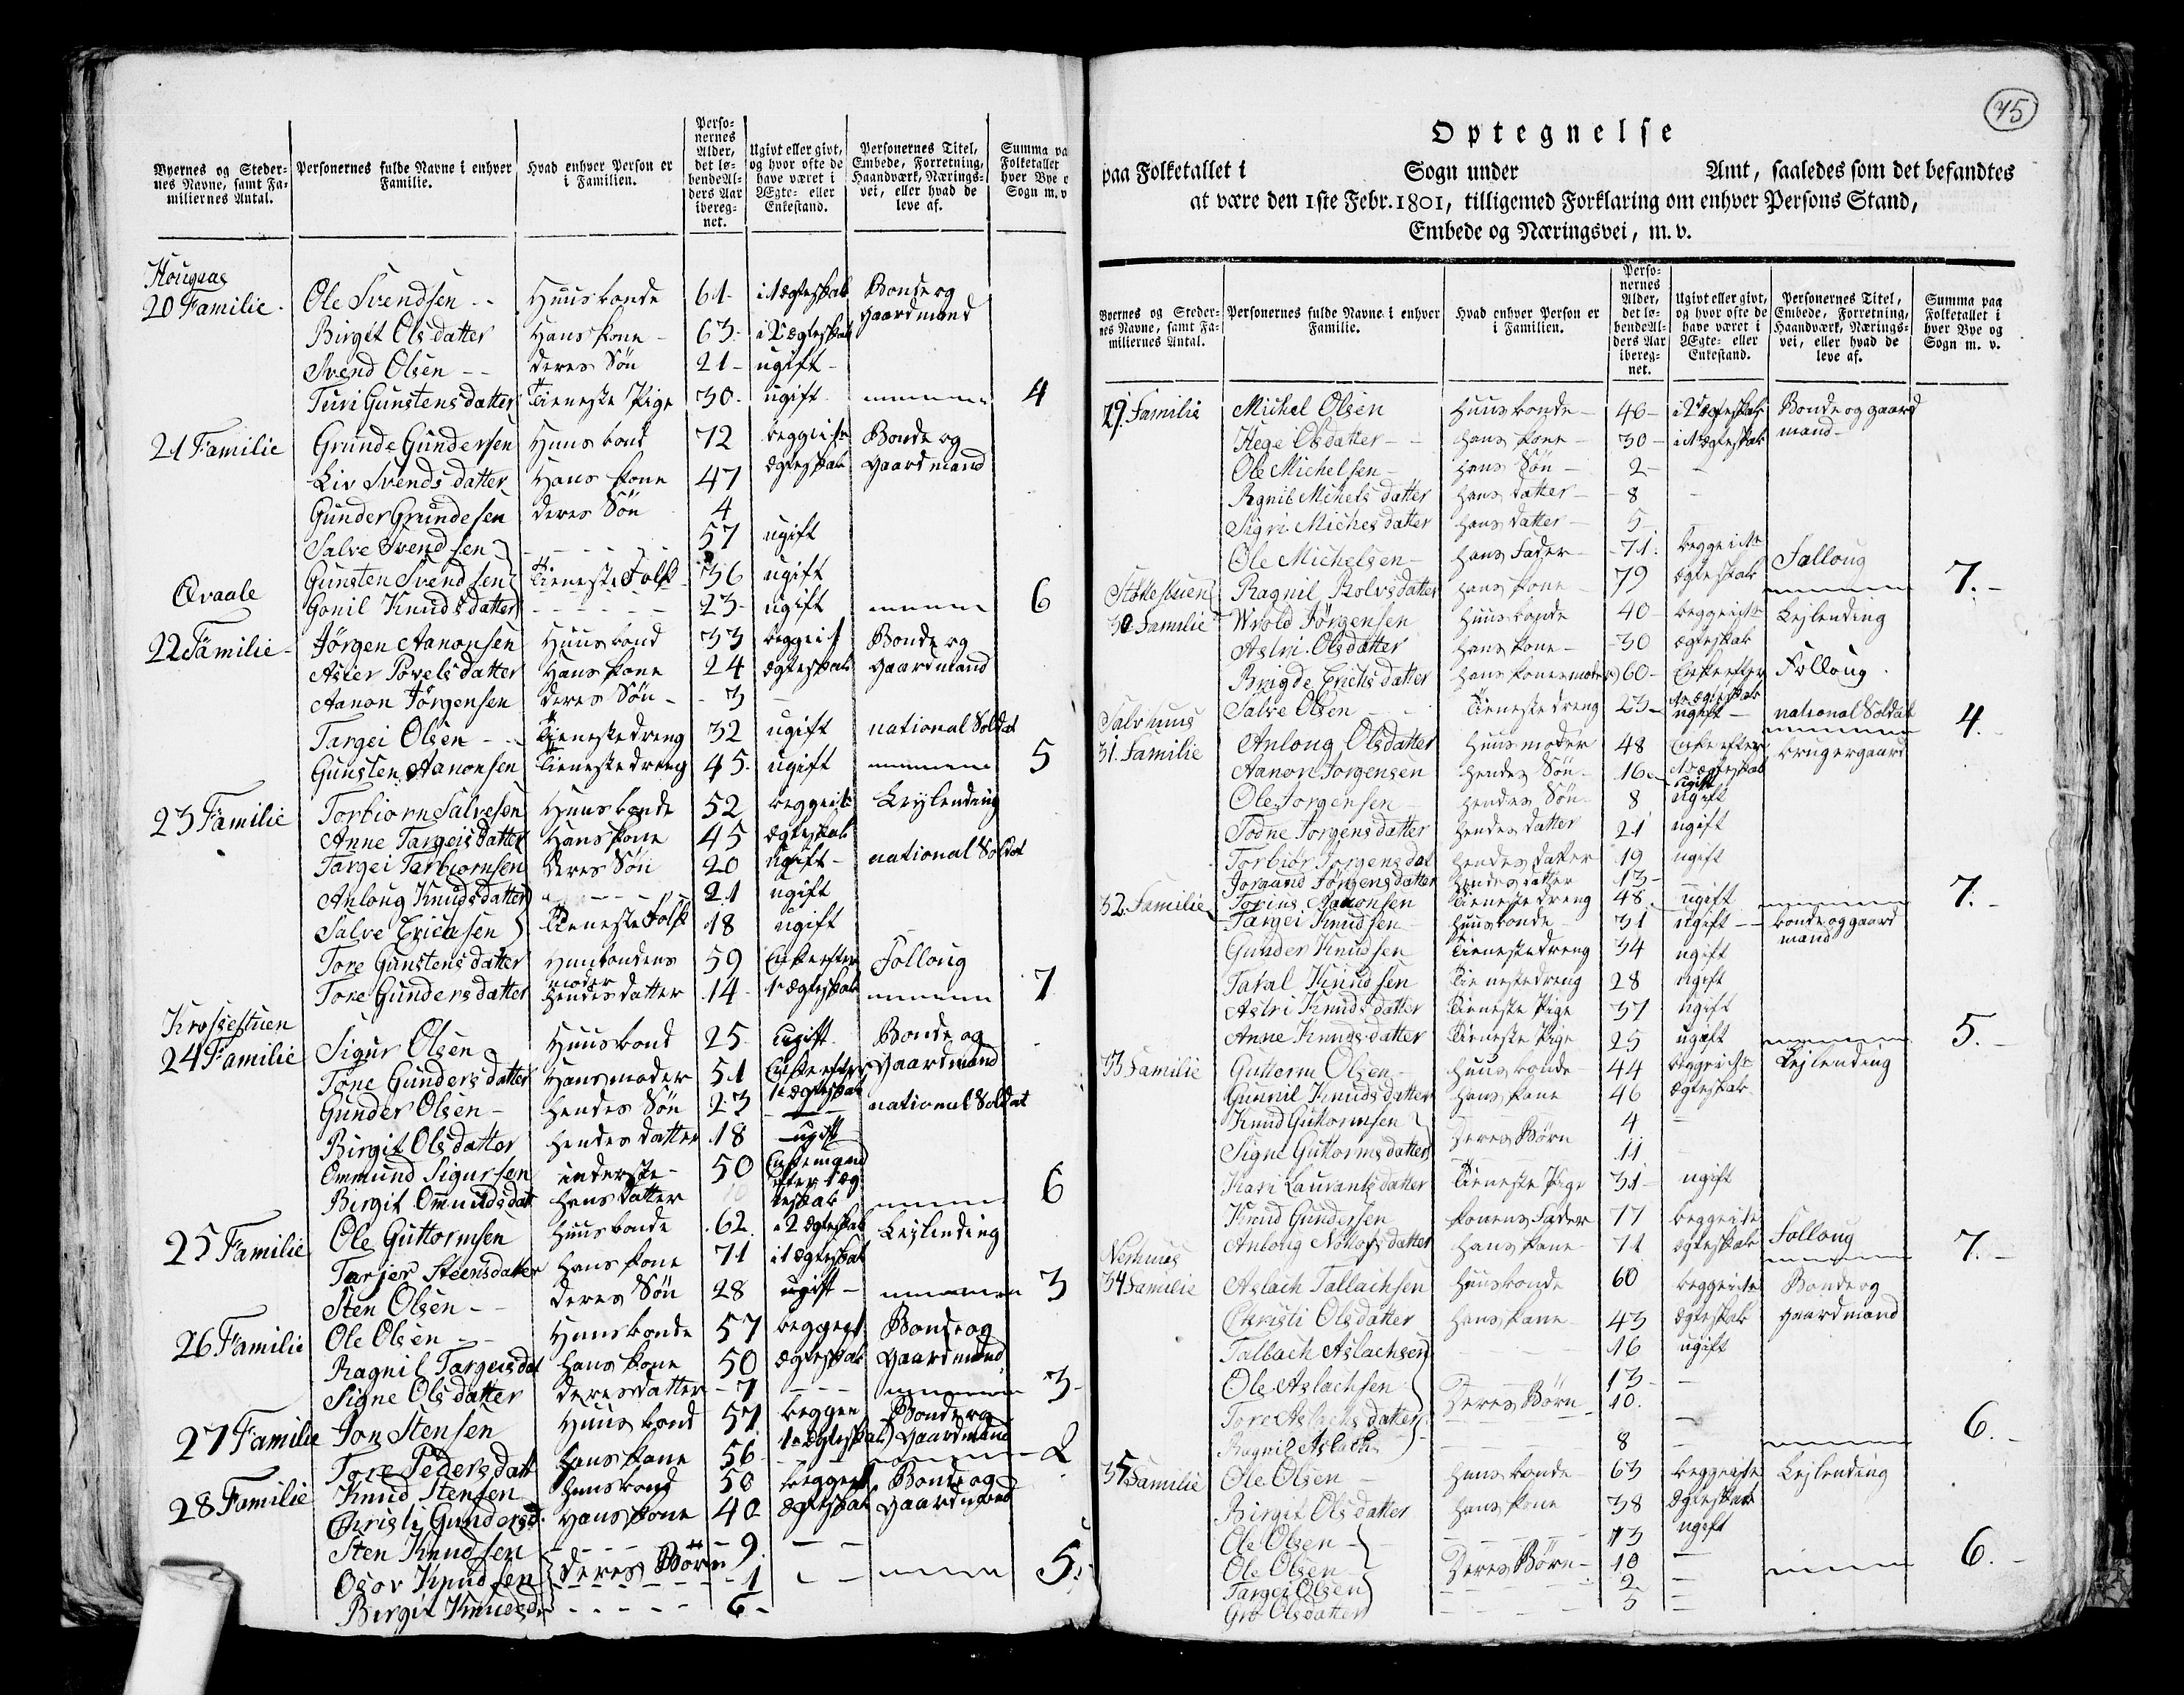 Byernes og Steder-
nes Navne, samt Fa-
miliernes Antal.
Personernes fulde Navne i enhver
Familie.
Hvad enhver Person er
i Familien.
Perso-
nernes
Alder,
det lø-
bende Al-
ders Aar
ibereg-
net.
Ugivt eller givt,
og hvor ofte de
have været i
Ægte- eller
Enkestand.
Personernes Titel,
Embede, Forretning,
Haandværk, Nærings-
vei, eller hvad de
leve af.
Summa pa
Folketallet
hver Bye o
Sogn m. v
Hougaas
20 Familie Ole Svendsen Huusbonde 61 i 1 ægteskab Bonde og
Birgit Olsdatter Hans kone 63 i 2 ægteskab gaardmand
Svend Olsen deres Søn 21 ugift
Turi Gunstensdatter Tieneste Pige 30 ugift 4
21 Familie Grunde Gundersen Huusbond 72 begge i 1te Bonde og
Liv Svendsdatter Hans kone 47 ægteskab Gaardmand
Gunder Grundesen deres Søn 4
Salve Svendsen 57 ugift
Gunsten Svendsen Tieneste Folk 36 ugift
Qvaale Gonil Knudsdatter 23 ugift 6
22 Familie Jörgen Aanonsen Huusbond 33 begge i 1 Bonde og
Asier Povelsdatter Hans kone 24 ægteskab Gaardmand
Aanon Jörgensen deres Søn 3
Targei Olsen Tienestedreng 32 ugift national Soldat
Gunsten Aanonsen Tienestedreng 45 ugift 5
23 Familie Torbiorn Salvesen Huusbonde 52 begge i 1te Leylending
Anne Targeisdatter Hans kone 45 ægteskab
Targei Tarbiornsen deres Søn 20 ugift national Soldat
Anloug Knudsdatter 21 ugift
Salve Ericksen Tieneste Folk 18 ugift
Tore Gunstensdatter Huusbondens moder 59 Enke efter Folloug
Tone Gundersdatter hendes datter 14 1te ægteskab 7
Krossestuen
24 Familie Sigur Olsen Huusbond 25 ugift Bonde og
Tone Gundersdatter Hans moder 51 Enke efter Gaardmand
1te ægteskab
Gunder Olsen hendes Søn 23 national Soldat
Birgit Olsdatter hendes datter 18 ugift
Ommund Sigursen inderste 50 Enkemand
efter 1 æg
Birgit Omundsdat hans datter teskab 6
25 Familie Ole Guttormsen Huusbonde 62 i 2 ægteskab Leylending
Tarjer Steensdatter hans kone 71 i 1 ægteskab
Sten Olsen deres Søn 28 ugift 3
26 Familie Ole Olsen Huusbonde 57 begge i 1 Bonde og
Ragnil Targeisdat hans kone 50 ægteskab Gaardmand
Signe Olsdatter deres datter 7 3
27 Familie Jon Stensen Huusbond 57 begge i Bonde og
1te ægteskab Gaardmand
Tore Pedersdatt hans kone 56 2
28 Familie Knud Stensen huusbond 50 begge i 1 Bonde og
Christi Gundersd hans kone 40 ægteskab Gaardmand
Sten Knudsen 9
Osov Knudsen deres Børn 1 5
Birgit Knudsd 6
75
Optegnelse
paa Folketallet i Sogn under Amt, saaledes som det befandtes
at være den 1ste Febr. 1801, tilligemed Forklaring om enhver Persons Stand,
Embede og Næringsvei, m. v.
Byernes og Steder-
nes Navne, samt Fa-
miliernes Antal.
Personernes fulde Navne i enhver
Familie.
Hvad enhver Person er
i Familien.
Perso-
nernes
Alder,
det lø-
bende Al-
ders Aar
ibereg-
net.
Ugivt eller givt,
og hvor ofte de
have været i
Ægte- eller
Enkestand.
Personernes Titel,
Embede, Forretning,
Haandværk, Nærings-
vei, eller hvad de
leve af.
Summa paa
Folketallet i
hver Bye og
Sogn m. v.
29 Familie Michel Olsen Huusbonde 46 i 2 ægteskab Bonde og gaard
Hege Olsdatter hans kone 30 i 1 ægteskab mand
Ole Michelsen hans Søn 2
Ragnil Michelsdatter hans datter 8
Sigri Michesdatter hans datter 5
Ole Michelsen hans Fader 71 begge i 1te Folloug
Stokestuen Ragnil Rolvsdatter hans kone 79 ægteskab 7.
30 Familie Wrold Jörgensen huusbonde 40 begge i 1te Lejlending
Aslri Olsdatter hans kone 30 ægteskab
Brigde Erichsdatter hans kones moder 60 Enke efter Folloug
1te ægteskab
Salvhuus Salve Olsen Tienestedreng 23 ugift national Soldat 4.
31. Familie Anloug Olsdatter huusmoder 48 Enke efter bruger gaard
1te ægteskab
Aanon Jorgensen hendes Søn 16 ugift
Ole Jorgensen hendes Søn 8 ugift
Todne Jorgensdatter hendes datter 21 ugift
Torbiør Jorgensdat hendes datter 19 ugift
Jorgund Jörgensdatter hendes datter 13
Torius Aanonsen Tienestedreng 48 ugift 7.
32. Familie Targei Knudsen huusbonde 31 ugift bonde og gaard
mand
Gunder Knudsen Tienestedreng 34 ugift
Taral Knudsen Tienestedreng 28 ugift
Aslri Knudsdatter Tieneste Pige 37 ugift
Anne Knudsdatter Tieneste Pige 25 ugift 5.
33 Familie Guttorm Olsen huusbonde 44 begge i 1te Lejlending
Gunnil Knudsdatter hans kone 46 ægteskab
Knud Guttormsen 4
Signe Guttormsdatter Deres Børn 11
Kari Laurantsdatter Tieneste Pige 31 ugift
Knud Gundersen konens Fader 77 begge i 1te Folloug
Anloug datter hans kone 71 ægteskab 7.
Nerhuus
34 Familie Aslach Tallachsen huusbonde 60 begge i 1te Bonde og
Christi Olsdatter hans kone 43 ægteskab gaardmand
Tallach Aslachsen 16 ugift
Ole Aslachsen 13
Tore Aslachsdatter Deres Børn 10.
Ragnil Aslachs 8 6.
35 Familie Ole Olsen huusbonde 63 begge i 1te Lejlending
Birgit Olsdatter hans kone 38 ægteskab
Ole Olsen 13 ugift
Ole Olsen Deres Børn 10 6.
Targei Olsen 2
Gro Olsdatter 5